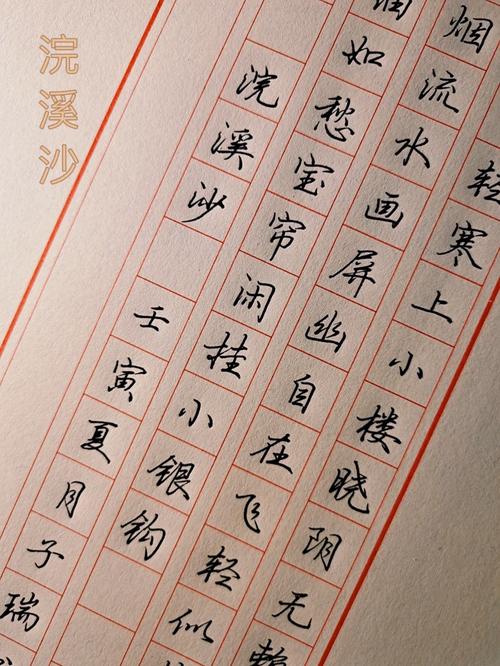 浣溪沙
轻寒上小楼晓阴无赖
烟流水画屏幽自在飞轻似
如愁宝帘闲桂小银钩
浣溪沙 壬寅夏月子瑞